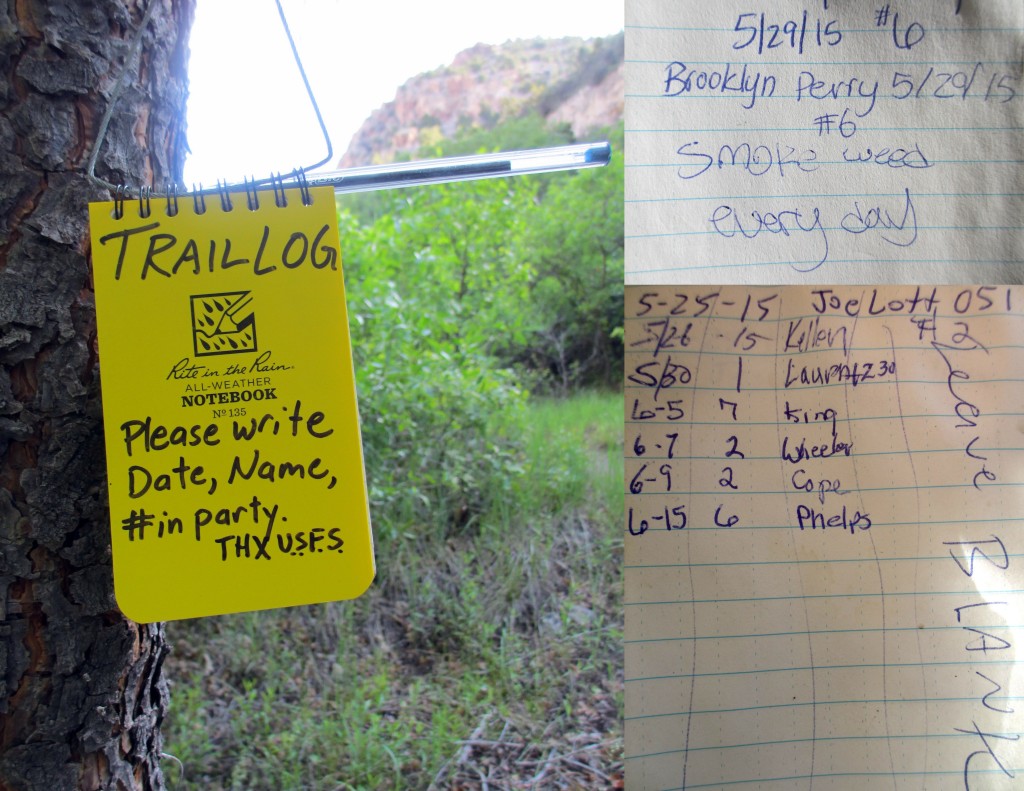 TRAIL LOG
Rite in the Rain
ALL-WEATHER
NOTEBOOK
Nº 135
Please write
Date, Name,
# in party.
THX U.S.F.S.
5/29/15 #6
Brooklyn Perry 5/29/15
#6
smoke weed
every day
5-25-15 Joe Lott 051
5/26 -15 Killen # 2
5/30 1
6-5 7 King
6-7 2 Wheeler
6-9 2 Cope
6-15 6 Phelps
Leave
BLANK